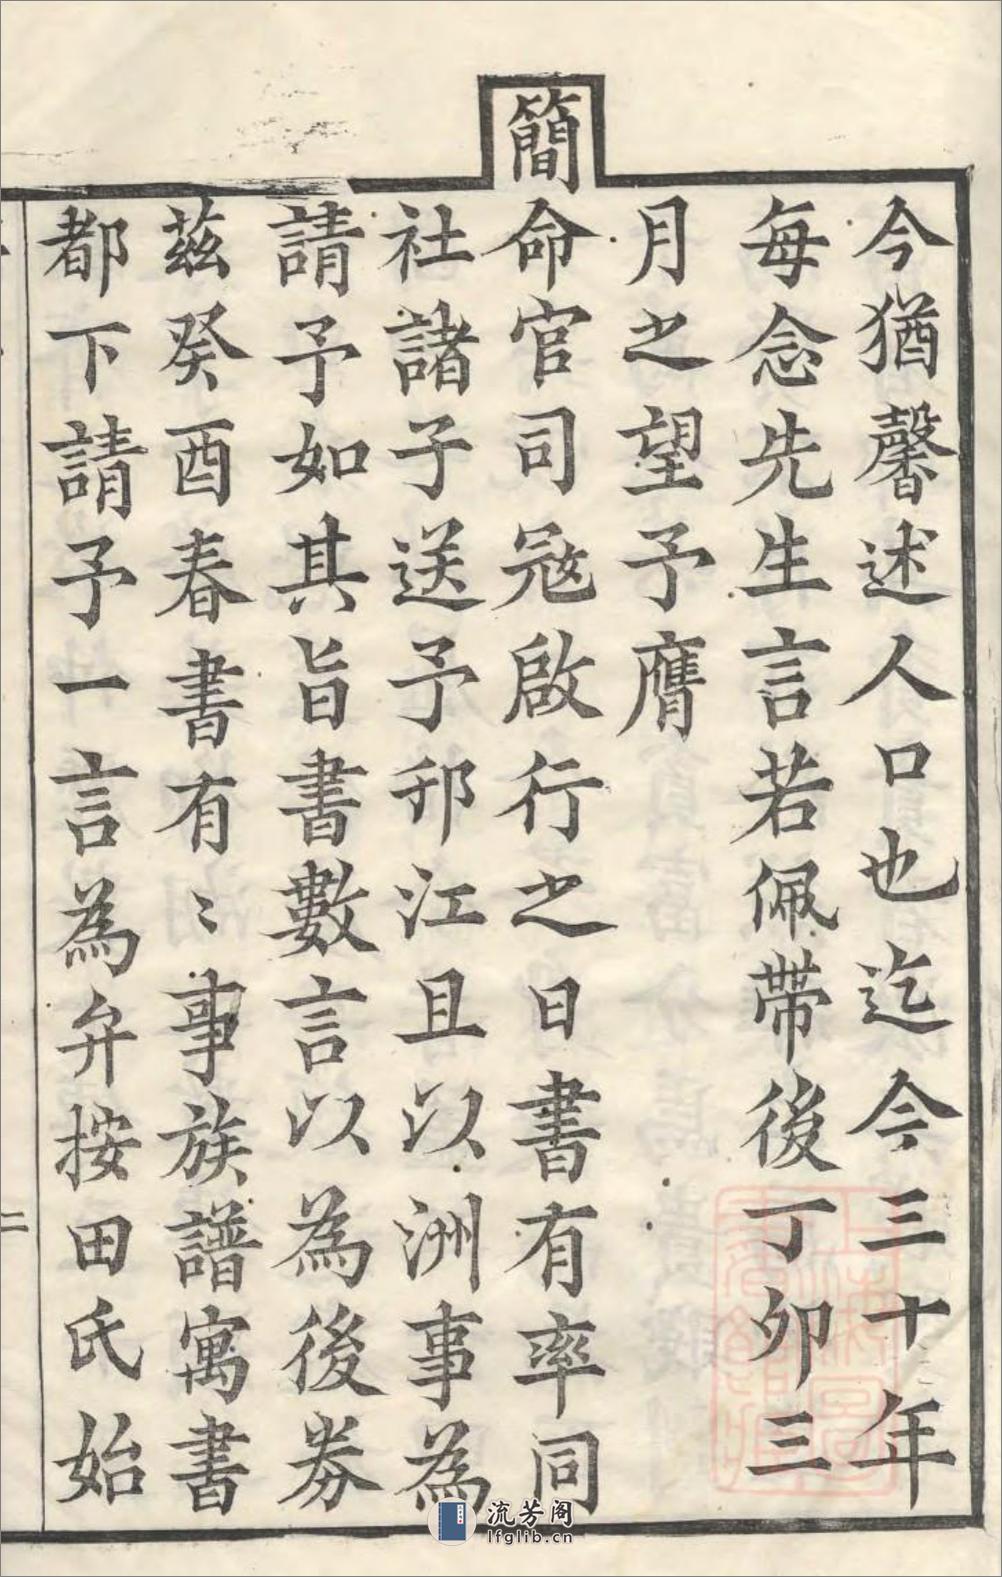 今猶馨述人口也迄今三十年
每念先生言若佩帶後丁卯三
月之望予膺
簡
命官司冦啟行之日書有率同
社諸子送予邗江且以洲事為
請予如其旨書數言以為後券
茲癸酉春書有〻事族譜寓書
都下請予一言為弁按田氏始
二
流芳阁
lfglib.cn